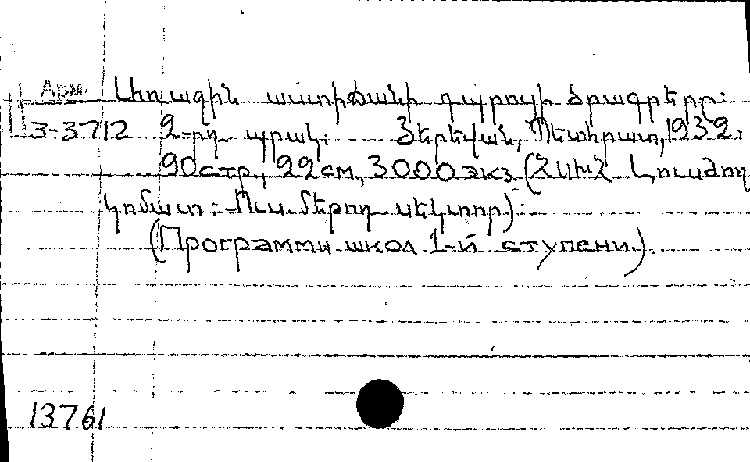 Арм. Առաջին աստիճանի դպրոցի ծրագրերը։
3-3712 2-րդ պրակ։ Յերեվան, Պետհրատ, 1932.
90стр., 22 см, 3000 экз. (ՀՍԽՀ Լուսժող
կոմատ։ Ուս. մեթոդ սեկտոր)։
(Программы школ 1-й ступени).
13761